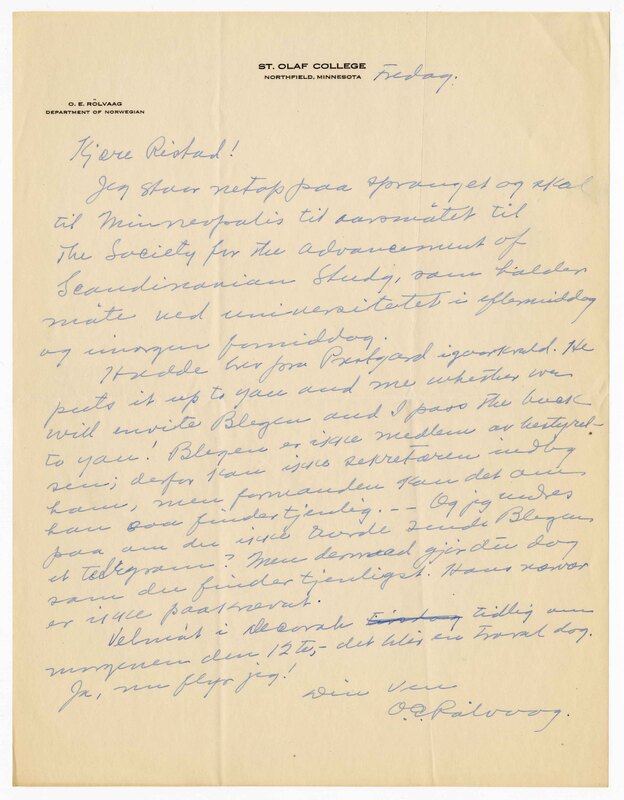 ST. OLAF COLLEGE
NORTHFIELD, MINNESOTA
Fredag.
O. E. RÖLVAAG
DEPARTMENT OF NORWEGIAN
Kjære Ristad!
Jeg staar netop paa spranget og skal
til Minneapolis til aarsmötet til
The Society for the Advancement of
Scandinavian Study, som holder
möte ved universitetet i eftermiddag
og imorgen formiddag.
Hadde brev fra Prestgard igaarkveld. He
puts it up to you and me whether we
will invite Blegen and I pass the buck
to you! Blegen er ikke medlem av bestyrel-
sen; derfor kan ikke sekretæren indby
ham, men formanden kan det om
han saa finder tjenlig. -- Og jeg undres
paa om du ikke burde sende Blegen
et telegram? Men dermed gjör du dog
som du finder tjenligst. Hans nærvær
er ikke paakrævet.
Velmöt i Decorah Tirsdag tidlig om
morgenen den 12te, - det blir en travl dag.
Ja, nu flyr jeg!
Din ven
O.E. Rölvaag.